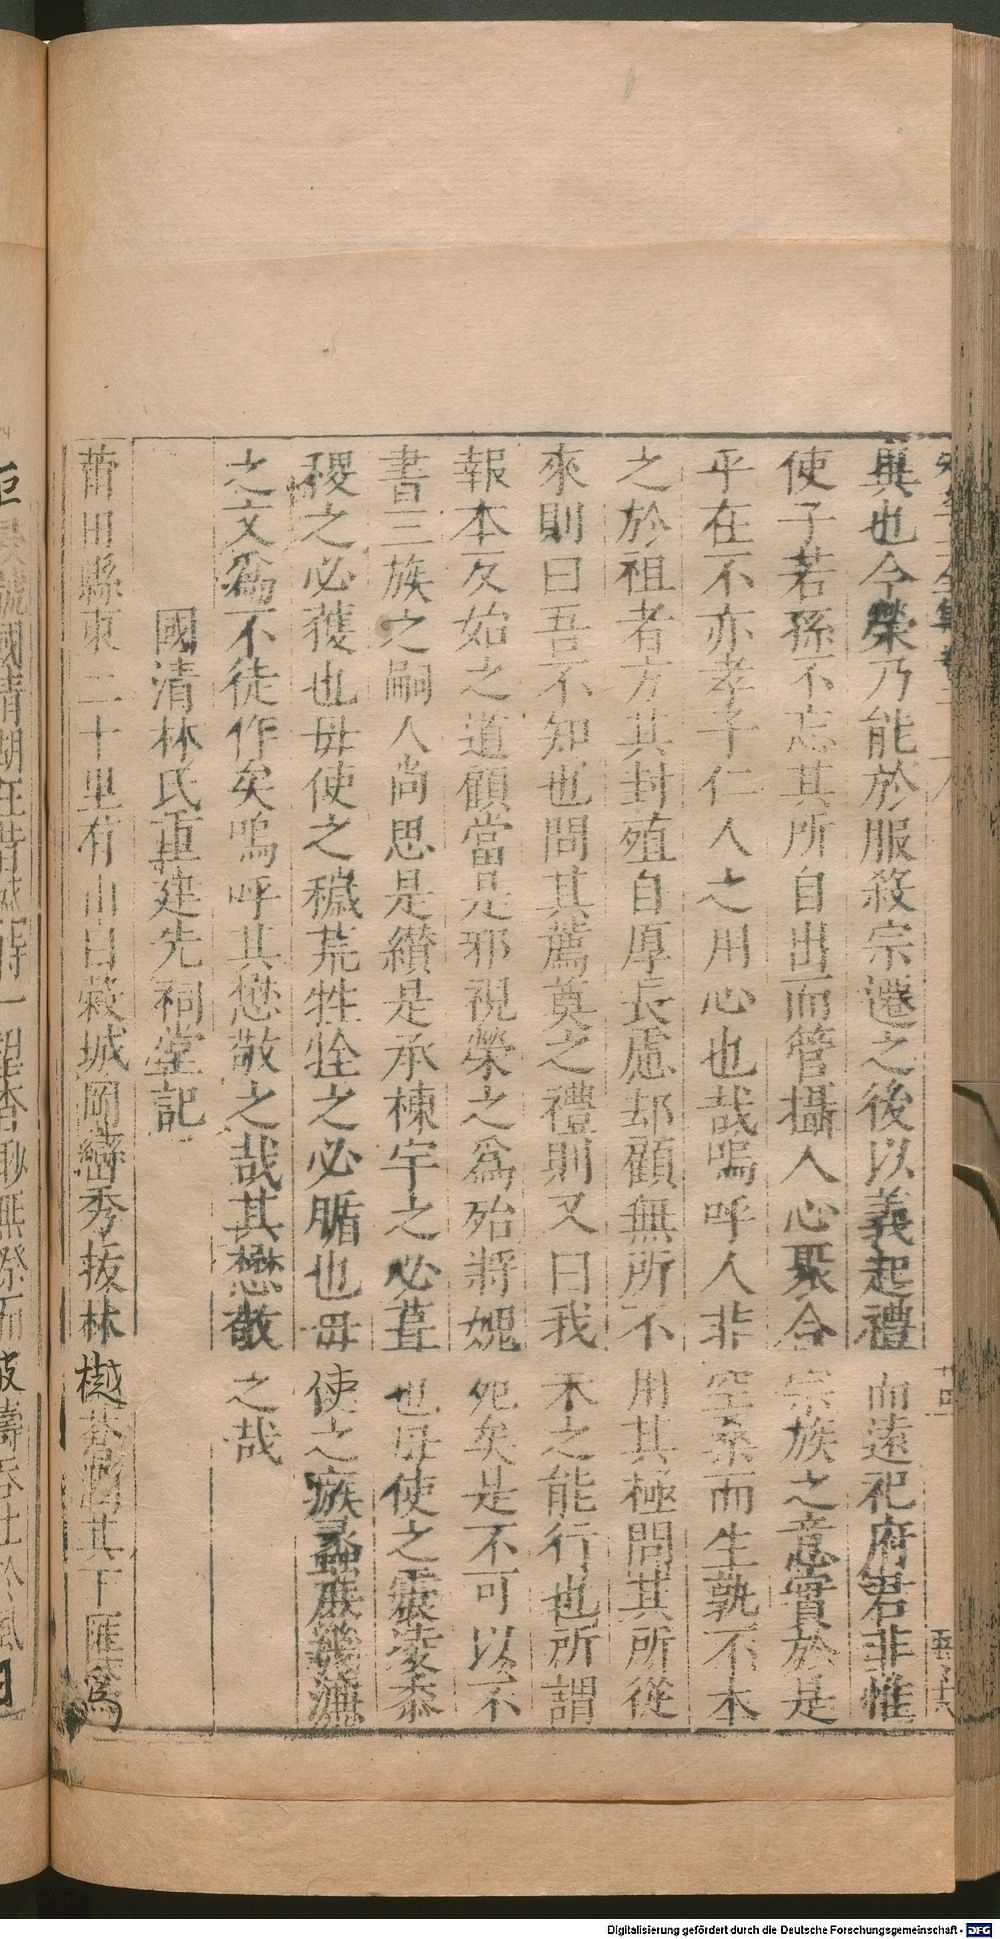 真也今榮乃能於服殺宗遷之後以義起禮而遠祀府君非惟
使子若孫不忘其所自出而管攝人心聚合宗族之意實於是
乎在不亦孝子仁人之用心也哉嗚呼人非空桑而生孰不本
之於祖者方其封殖自厚長慮却顧無所不用其極問其所從
來則曰吾不知也問其薦奠之禮則又曰我未之能行也所謂
報本反始之道顧當是邪視榮之為殆將媿死矣是不可以不
書三族之嗣人尚思是纘是承棟宇之必葺也毋使之震凌黍
稷之必穫也毋使之穢荒牲牷之必腯也毋使之瘯蠡
之文為不徒作矣嗚呼其懋敬之哉其懋敬之哉
國清林氏重建先祠堂記
莆田縣東二十里有山曰榖城岡巒秀拔林樾蒼潤其下匯為
Digitalisierung gefördert durch die Deutsche Forschungsgemeinschaft - DFG